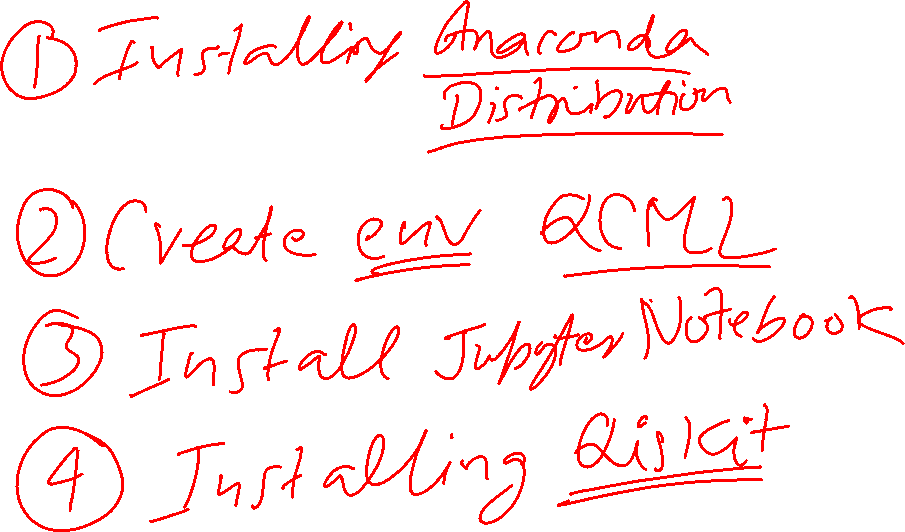 ① Installing Anaconda
Distribution
② Create env QCML
③ Install Jupyter Notebook
④ Installing Qiskit